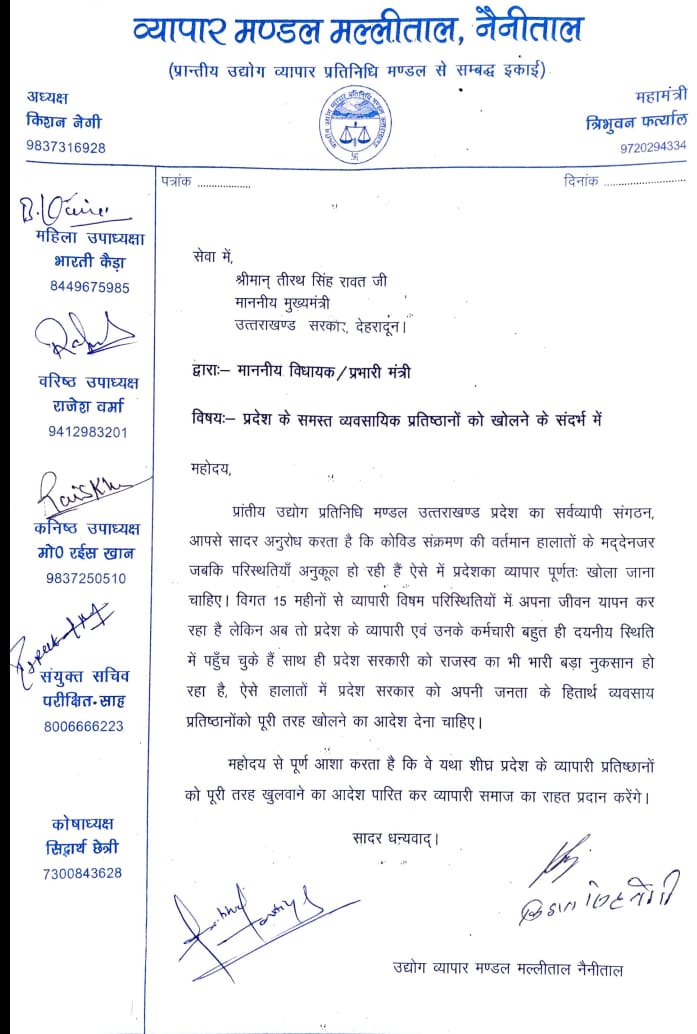 व्यापार मण्डल मल्लीताल, नैनीताल
(प्रान्तीय उद्योग व्यापार प्रतिनिधि मण्डल से सम्बद्ध इकाई)
अध्यक्ष
किशन नेगी
9837316928
महामंत्री
त्रिभुवन फर्त्याल
9720294334
पत्रांक ..................
दिनांक ...........................
महिला उपाध्यक्षा
भारती कैड़ा
8449675985
वरिष्ठ उपाध्यक्ष
राजेश वर्मा
9412983201
कनिष्ठ उपाध्यक्ष
मो0 रईस खान
9837250510
संयुक्त सचिव
परीक्षित साह
8006666223
कोषाध्यक्ष
सिद्धार्थ छेत्री
7300843628
सेवा में,
श्रीमान् तीरथ सिंह रावत जी
माननीय मुख्यमंत्री
उत्तराखण्ड सरकार, देहरादून।
द्वाराः– माननीय विधायक/प्रभारी मंत्री
विषयः– प्रदेश के समस्त व्यवसायिक प्रतिष्ठानों को खोलने के संदर्भ में
महोदय,
प्रांतीय उद्योग प्रतिनिधि मण्डल उत्तराखण्ड प्रदेश का सर्वव्यापी संगठन,
आपसे सादर अनुरोध करता है कि कोविड संक्रमण की वर्तमान हालातों के मद्देनजर
जबकि परिस्थतियाँ अनुकूल हो रही हैं ऐसे में प्रदेशका व्यापार पूर्णतः खोला जाना
चाहिए। विगत 15 महीनों से व्यापारी विषम परिस्थितियों में अपना जीवन यापन कर
रहा है लेकिन अब तो प्रदेश के व्यापारी एवं उनके कर्मचारी बहुत ही दयनीय स्थिति
में पहुँच चुके हैं साथ ही प्रदेश सरकारी को राजस्व का भी भारी बड़ा नुकसान हो
रहा है, ऐसे हालातों में प्रदेश सरकार को अपनी जनता के हितार्थ व्यवसाय
प्रतिष्ठानोंको पूरी तरह खोलने का आदेश देना चाहिए।
महोदय से पूर्ण आशा करता है कि वे यथा शीघ्र प्रदेश के व्यापारी प्रतिष्छानों
को पूरी तरह खुलवाने का आदेश पारित कर व्यापारी समाज का राहत प्रदान करेंगे।
सादर धन्यवाद।
उद्योग व्यापार मण्डल मल्लीताल नैनीताल